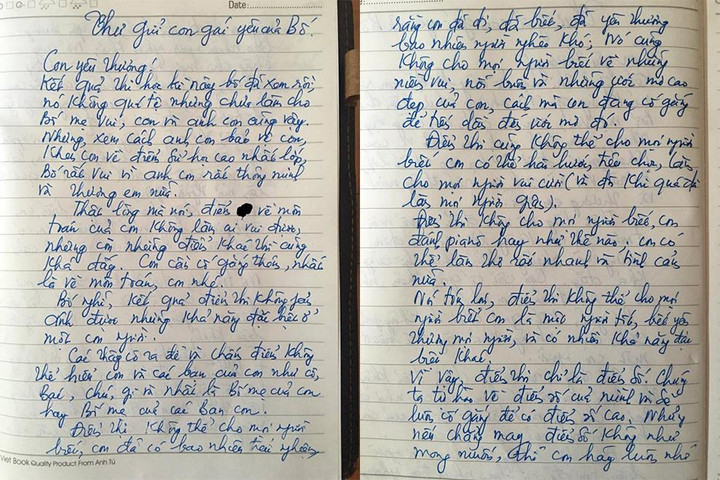 Date:
Thư gửi con gái yêu của Bố.
Con yêu thương!
Kết quả thi học kì này bố đã xem rồi,
nó không quá tệ nhưng chưa làm cho
Bố mẹ vui, con và anh con cũng vậy.
Nhưng, xem cách anh con bảo vệ con,
khoe con về điểm sử học cao nhất lớp,
Bố rất vui vì anh con rất thông minh
và thương em nữa.
Thật lòng mà nói, điểm về môn
toán của con không làm ai vui được,
nhưng cm những điểm khác thì cũng
khá đấy. Con cần cố gắng thêm, nhất
là về môn toán, con nhé.
Bố nghĩ, kết quả điểm thi không phản
ánh được những khả năng đặc biệt ở
một con người.
Các thầy cô ra đề và chấm điểm không
thể hiểu con và các bạn của con như cô,
bác, chú, gì và nhất là Bố mẹ của con
hay Bố mẹ của các bạn con.
Điểm thi không thể cho mọi người
biết, con đã có bao nhiêu trải nghiệm,
Viet Book Quality Product From Anh Tú
rằng con đã đi, đã biết, đã yêu thương
bao nhiêu người nghèo khó; Nó cũng
không cho mọi người biết về những
niềm vui, nỗi buồn và những ước mơ cao
đẹp của con, cách mà con đang cố gắng
để tiến dần đến ước mơ đó.
Điểm thi cũng không thể cho mọi người
biết con có thể hài hước, tiếu lâm, làm
cho mọi người vui cười (và đôi khi quá đà
làm mọi người giận).
Điểm thi không cho mọi người biết, con
đánh piano hay như thế nào. con có
thể làm thơ rất nhanh và tình cảm
nữa.
Nói tóm lại, điểm thi không thể cho mọi
người biết con là một người tốt, biết yêu
thương mọi người, và có nhiều khả năng đặc
biệt khác.
Vì vậy, điểm thi chỉ là điểm số. Chúng
ta tự hào về điểm số của mình và sẽ
luôn cố gắng để có điểm số cao. Nhưng
nếu chẳng may điểm số không như
mong muốn, thì con hãy luôn nhớ